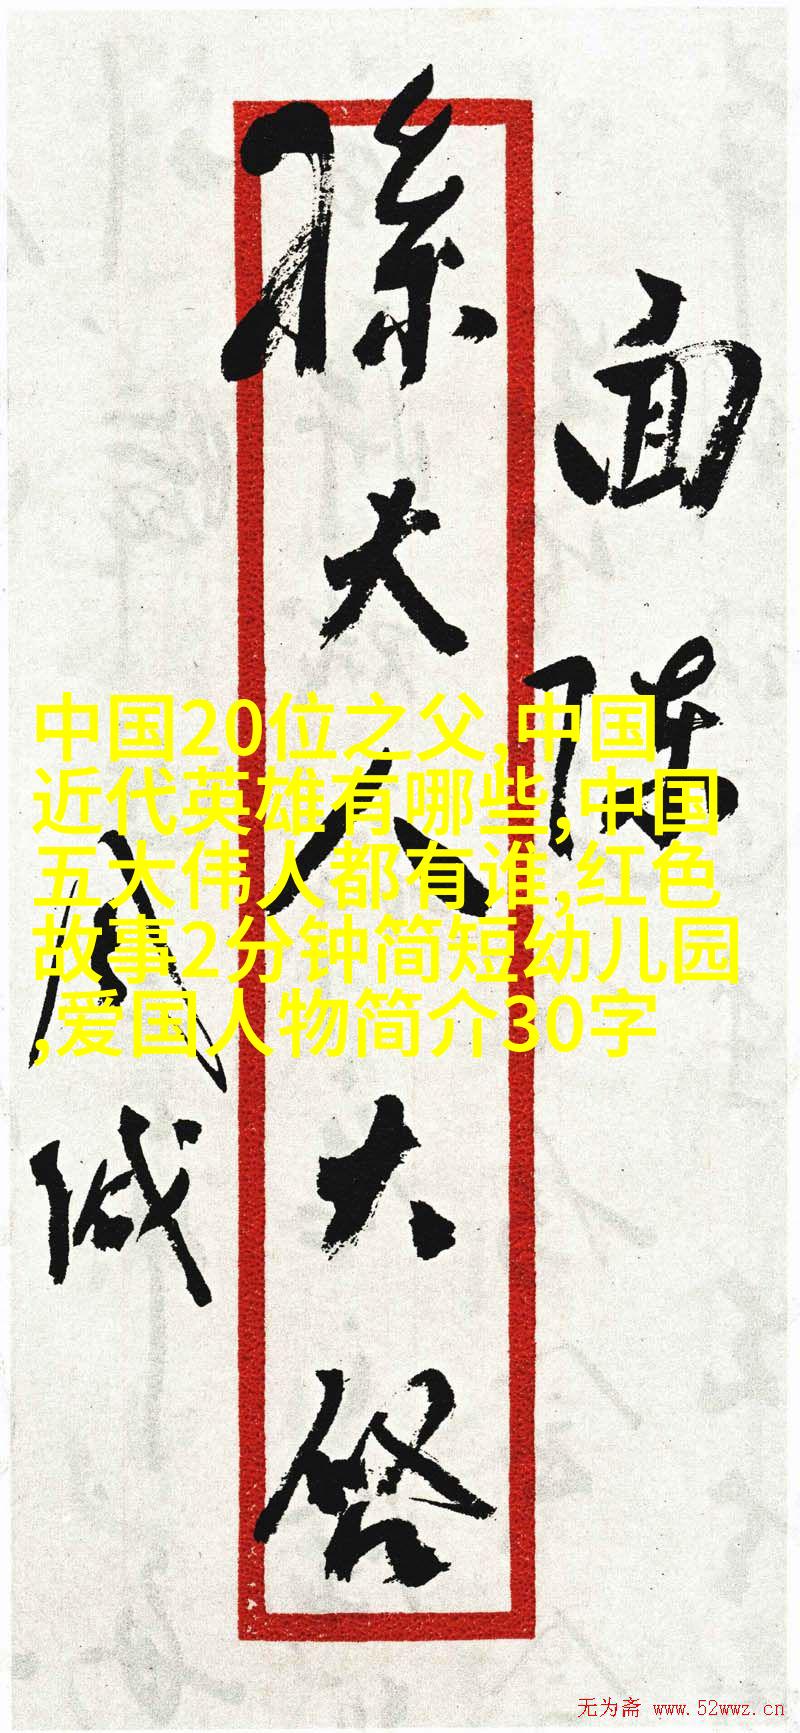 面陈
孫大人大啓
中国20位之父,中国
近代英雄有哪些,中国
五大伟人都有谁,红色
故事2分钟简短幼儿园
,爱国人物简介30字
无为斋 www.52wwz.cn